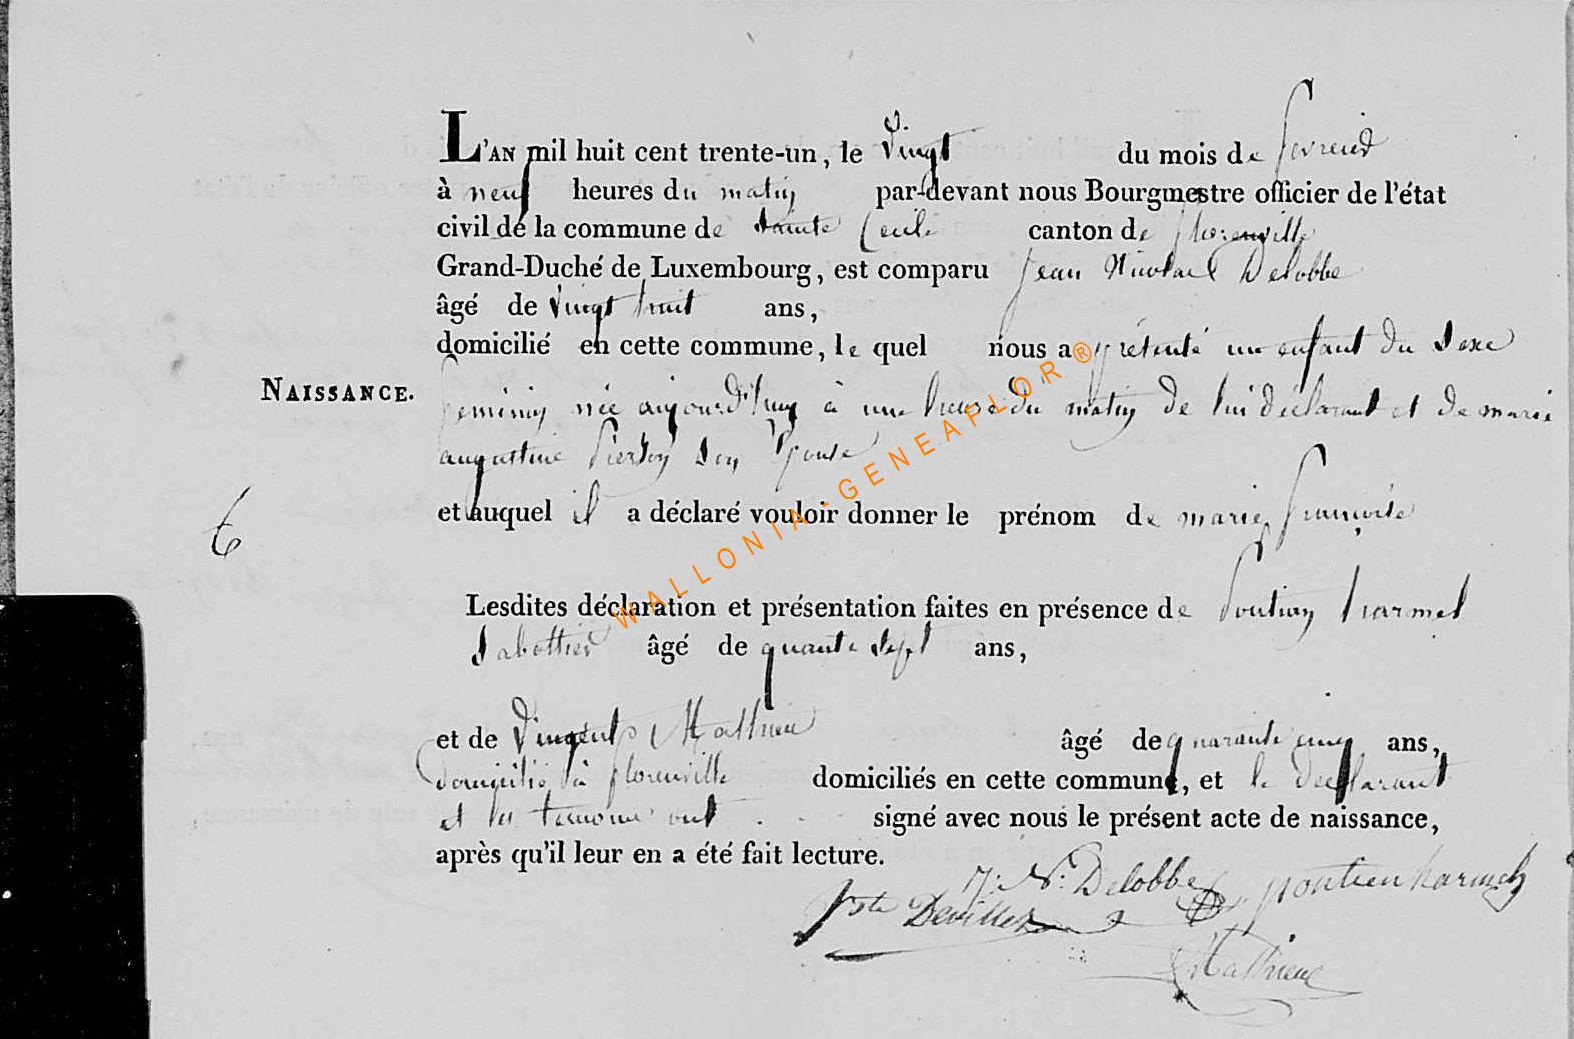 L'AN mil huit cent trente-un, le vingt du mois de fevrier
à neuf heures du matin par-devant nous Bourgmestre officier de l'état
civil de la commune de Sainte Cecile canton de florenville
Grand-Duché de Luxembourg, est comparu jean Nicolas Delobbe
âgé de vingt huit ans,
domicilié en cette commune, le quel nous a présenté un enfant du sexe
NAISSANCE.
feminin née aujourd'huy à une heure du matin de lui déclarant et de marie
augustine Pierson son Epouse
et auquel il a déclaré vouloir donner le prénom de marie, françoise
6
Lesdites déclaration et présentation faites en présence de Pontien harmel
Sabottier âgé de quarante sept ans,
et de Vingent Mathieu âgé de quarante cinq ans,
domicilié à florenville domiciliés en cette commune, et le declarant
et les temoins ont signé avec nous le présent acte de naissance,
après qu'il leur en a été fait lecture.
J: N: Delobbe pontien harmel
Devillez
Mathieu
WALLONIA-GENEAFLOR®